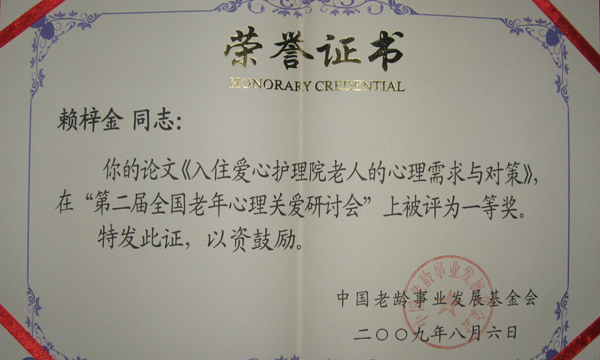 荣誉证书
HONORARY CREDENTIAL
赖梓金 同志：
你的论文《入住爱心护理院老人的心理需求与对策》，
在“第二届全国老年心理关爱研讨会”上被评为一等奖。
特发此证，以资鼓励。
中国老龄事业发展基金会
二〇〇九年八月六日
中国老龄事业发展基金会